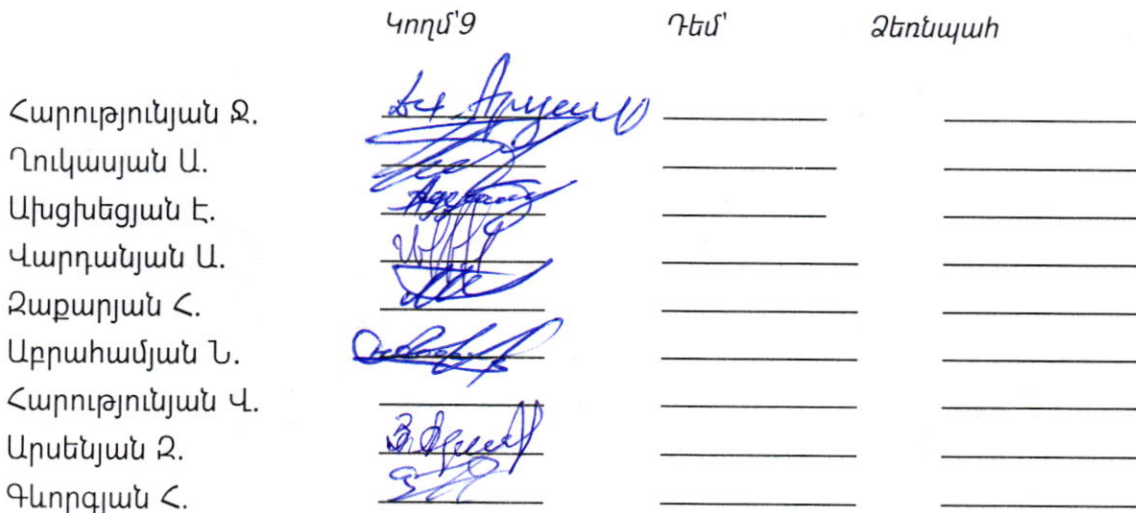 Կողմ՝9 Դեմ՝ Ձեռնպահ
Հարությունյան Ջ.
Ղուկասյան Ա.
Ախցխեցյան Է.
Վարդանյան Ա.
Զաքարյան Հ.
Աբրահամյան Ն.
Հարությունյան Վ.
Արսենյան Զ.
Գևորգյան Հ.